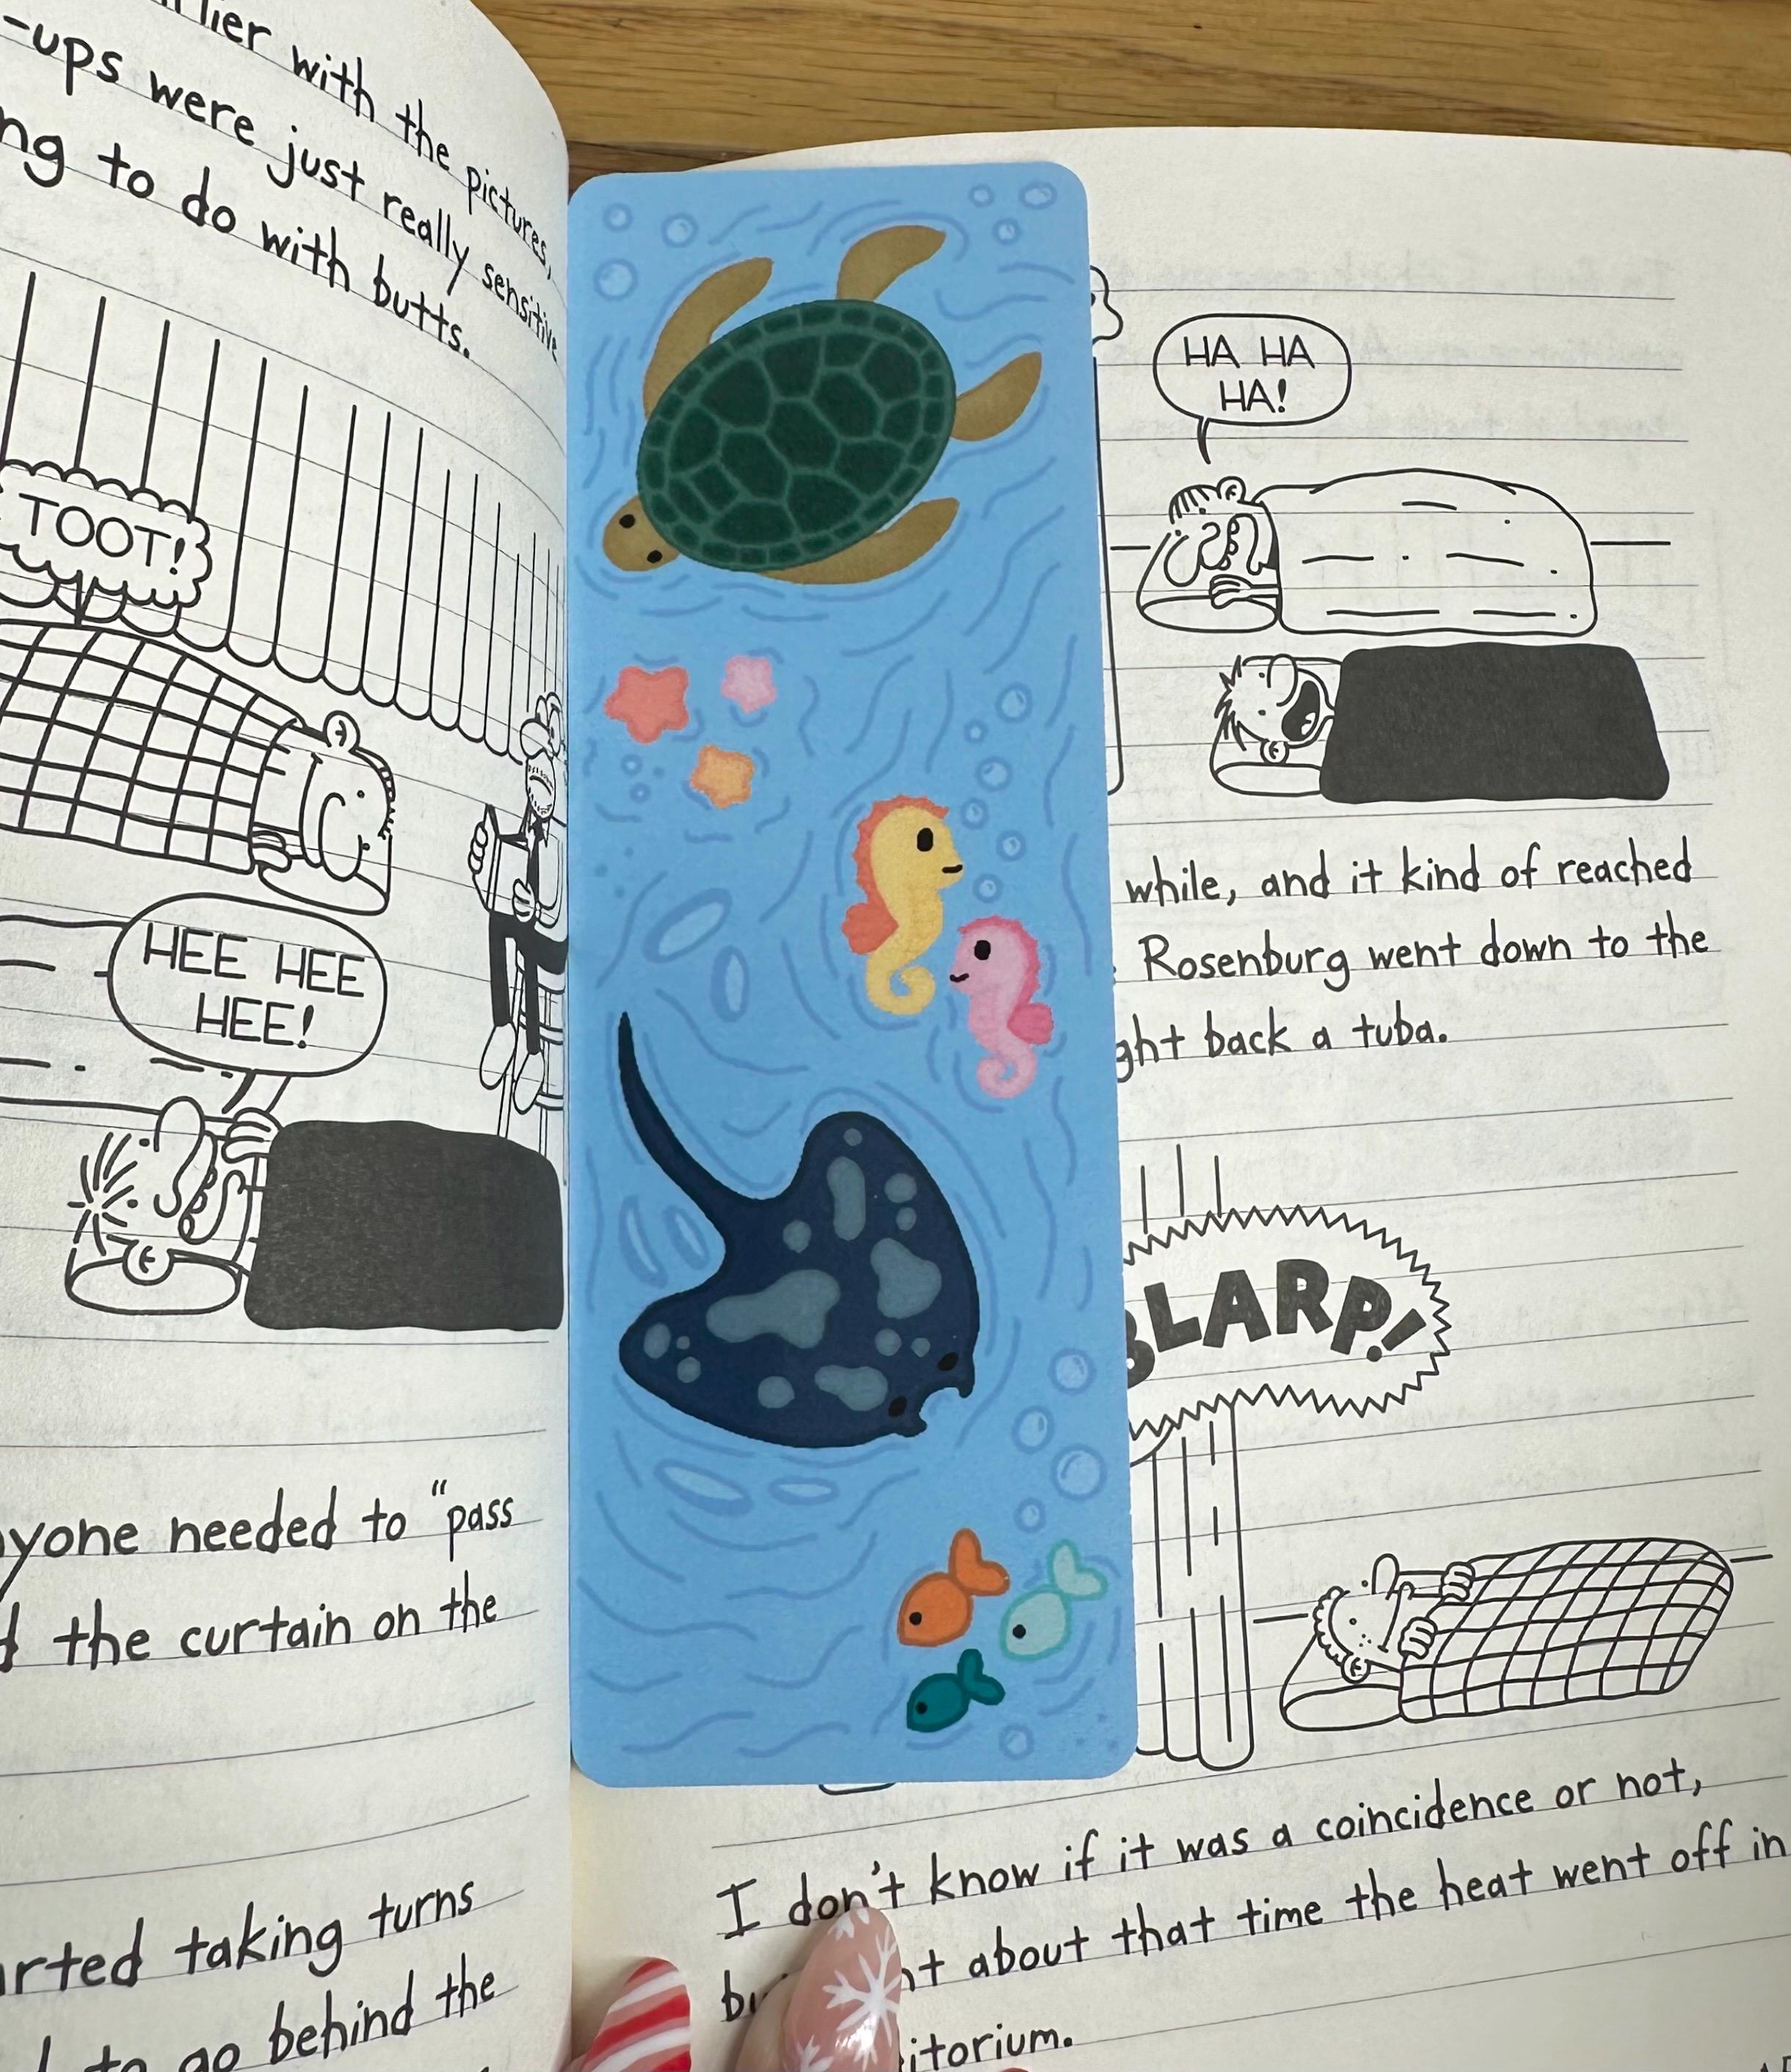 with the pictures,
-ups were just really sensitive
ng to do with butts.
TOOT!
HEE HEE
HEE!
yone needed to "pass
the curtain on the
rted taking turns
to go behind the
HA HA
HA!
while, and it kind of reached
Rosenburg went down to the
ght back a tuba.
BLARP!
I don't know if it was a coincidence or not,
about that time the heat went off in
itorium.